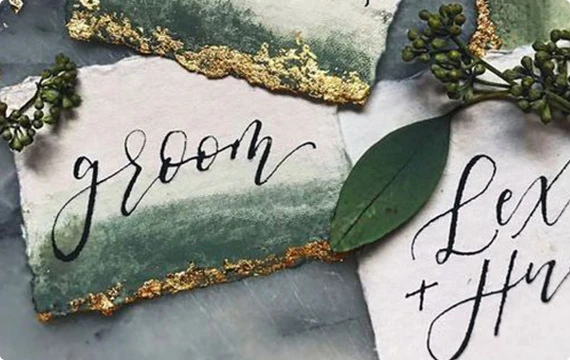 groom
Lex
+ Hu